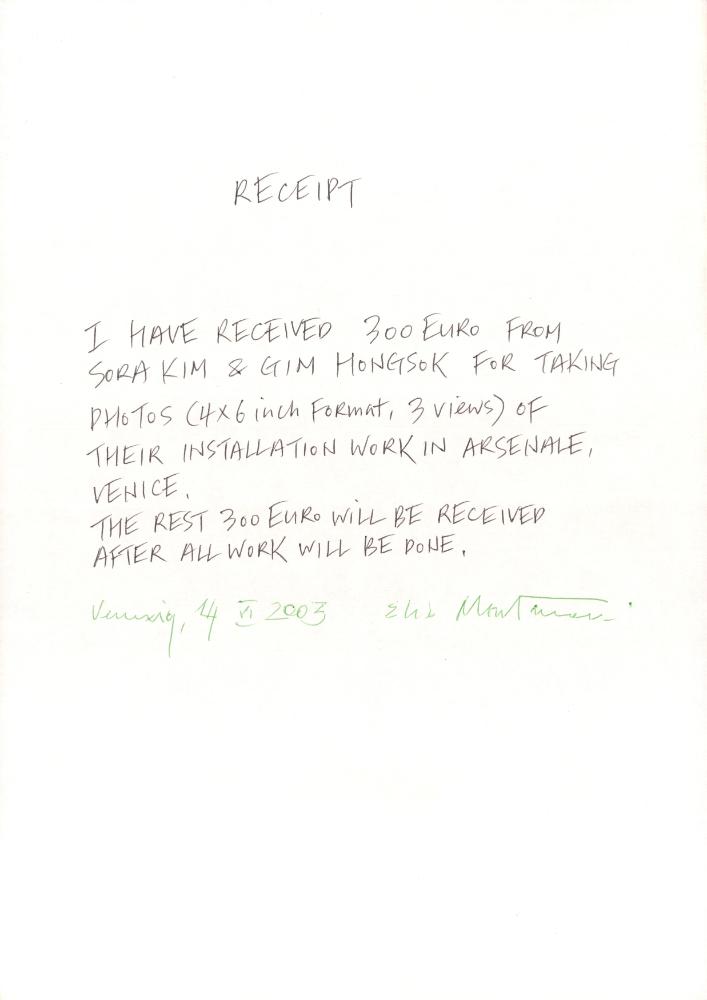 RECEIPT
I HAVE RECEIVED 300 EURO FROM
SORA KIM & GIM HONGSOK FOR TAKING
PHOTOS (4X6 inch FORMAT, 3 views) OF
THEIR INSTALLATION WORK IN ARSENALE,
VENICE.
THE REST 300 EURO WILL BE RECEIVED
AFTER ALL WORK WILL BE DONE.
Venezia, 14 VI 2003